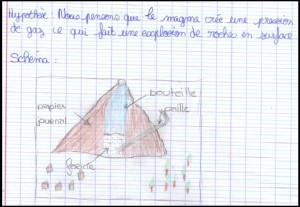 Hypothèse : Nous pensons que le magma crée une pression
de gaz ce qui fait une explosion de roche en surface
Schéma :
bouteille
papier
journal
paille
farine